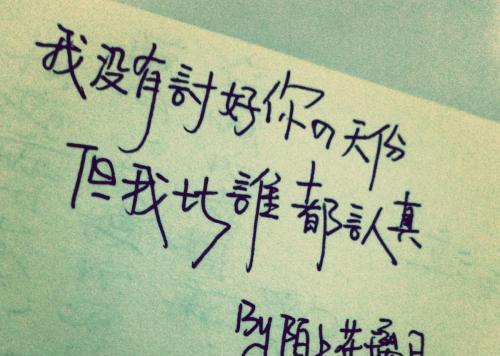 我没有討好你の天份
但我比誰都認真
By 陌上